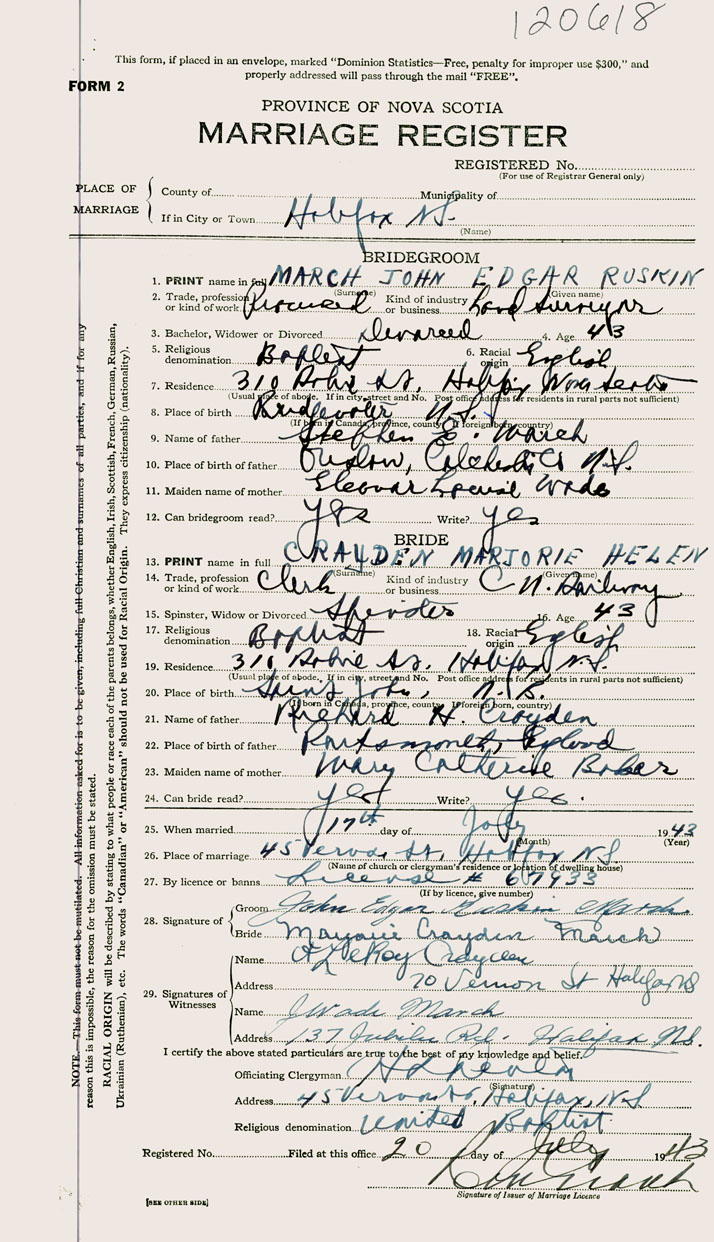 120618
This form, if placed in an envelope, marked "Dominion Statistics—Free, penalty for improper use $300," and
properly addressed will pass through the mail "FREE".
FORM 2
PROVINCE OF NOVA SCOTIA
MARRIAGE REGISTER
REGISTERED No.
(For use of Registrar General only)
PLACE OF MARRIAGE
County of Municipality of
If in City or Town Halifax N.S.
(Name)
BRIDEGROOM
1. PRINT name in full MARCH JOHN EDGAR RUSKIN
(Surname) (Given name)
2. Trade, profession or kind of work Kind of industry or business Land Surveyor
3. Bachelor, Widower or Divorced Divorced 4. Age 43
5. Religious denomination Baptist 6. Racial origin English
7. Residence 310 Robie St. Halifax Nova Scotia
(Usual place of abode. If in city, street and No. Post office address for residents in rural parts not sufficient)
8. Place of birth Bridgewater N.S.
(If born in Canada, province, county. If foreign born, country)
9. Name of father Stephen E. March
10. Place of birth of father Onslow, Colchester Co N.S.
11. Maiden name of mother Eleonor Louise Wade
12. Can bridegroom read? yes Write? yes
BRIDE
13. PRINT name in full CRAYDEN MARJORIE HELEN
(Surname) (Given name)
14. Trade, profession or kind of work Clerk Kind of industry or business C N. Railway
15. Spinster, Widow or Divorced Spinster 16. Age 43
17. Religious denomination Baptist 18. Racial origin English
19. Residence 310 Robie St. Halifax N.S.
(Usual place of abode. If in city, street and No. Post office address for residents in rural parts not sufficient)
20. Place of birth Saint John, N.B.
(If born in Canada, province, county. If foreign born, country)
21. Name of father Richard H. Crayden
22. Place of birth of father Portsmouth, England
23. Maiden name of mother Mary Catherine Baker
24. Can bride read? yes Write? yes.
25. When married 17th day of July 1943
(Month) (Year)
26. Place of marriage 45 Vernon St, Halifax N.S.
(Name of church or clergyman's residence or location of dwelling house)
27. By licence or banns License # 67933
(If by licence, give number)
28. Signature of
Groom John Edgar Ruskin March
Bride Marjorie Crayden March
29. Signatures of Witnesses
Name LeRoy Crayden
Address 70 Vernon St Halifax NS
Name J Wade March
Address 137 Jubilee Rd. Halifax N.S.
I certify the above stated particulars are true to the best of my knowledge and belief.
Officiating Clergyman
(Signature)
Address 45 Vernon St, Halifax, N.S
Religious denomination United Baptist
Registered No. Filed at this office 20 day of July 1943
Signature of Issuer of Marriage Licence
[SEE OTHER SIDE]
NOTE.—This form must not be mutilated. All information asked for is to be given, including full Christian and surnames of all parties, and if for any
reason this is impossible, the reason for the omission must be stated.
RACIAL ORIGIN will be described by stating to what people or race each of the parents belongs, whether English, Irish, Scottish, French, German, Russian,
Ukrainian (Ruthenian), etc. The words "Canadian" or "American" should not be used for Racial Origin. They express citizenship (nationality).